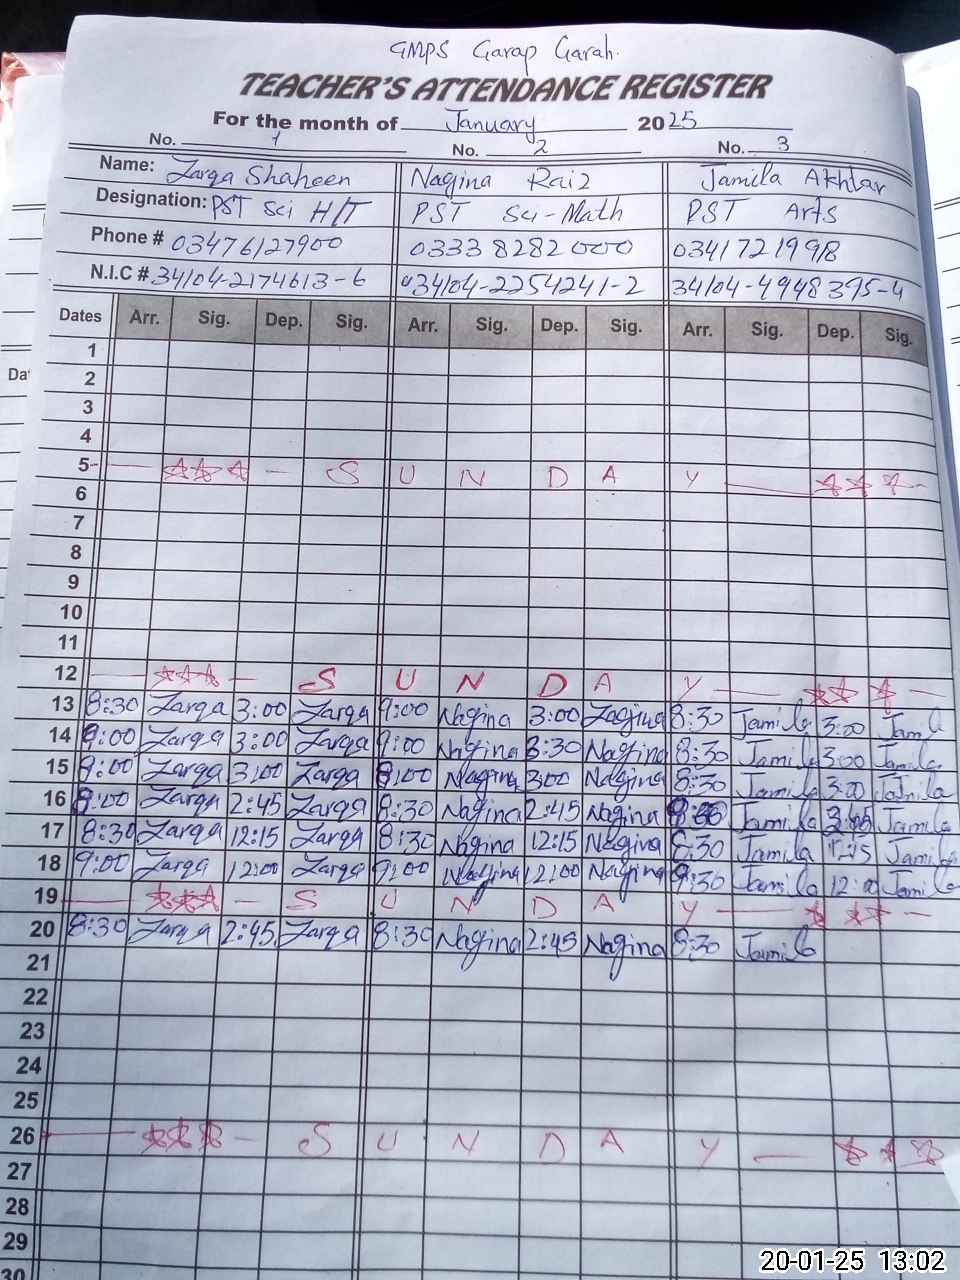 GMPS Garap Garah.
TEACHER'S ATTENDANCE REGISTER
For the month of January 2025
No. 1 No. 2 No. 3
Name: Zarqa Shaheen Nagina Raiz Jamila Akhtar
Designation: PST Sci H/T PST Sci-Math PST Arts
Phone # 03476127900 0333 8282000 0341721998
N.I.C # 34104-2174613-6 34104-2254241-2 34104-4948395-4
Dates Arr. Sig. Dep. Sig. Arr. Sig. Dep. Sig. Arr. Sig. Dep. Sig.
1
2
3
4
5 S U N D A Y
6
7
8
9
10
11
12 S U N D A Y
13 8:30 Zarqa 3:00 Zarqa 9:00 Nagina 3:00 8:30 Jamila 3:00 Jamila
14 9:00 Zarqa 3:00 Zarqa 9:00 Nagina 3:30 Nagina 8:30 Jamila 3:00 Jamila
15 9:00 Zarqa 3:00 Zarqa 8:00 Nagina 3:00 Nagina 8:30 Jamila 3:00
16 8:00 Zarqa 2:45 Zarqa 8:30 Nagina 2:45 Nagina Jamila Jamila
17 8:30 Zarqa 12:15 Zarqa 8:30 Nagina 12:15 Nagina 8:30 Jamila 12:15 Jamila
18 9:00 Zarqa 12:00 Zarqa 9:00 Nagina 12:00 Nagina Jamila 12:00 Jamila
19 S U N D A Y
20 8:30 Zarqa 2:45 Zarqa 8:30 Nagina 2:45 Nagina 8:30 Jamila
21
22
23
24
25
26 S U N D A Y
27
28
29
30
20-01-25 13:02